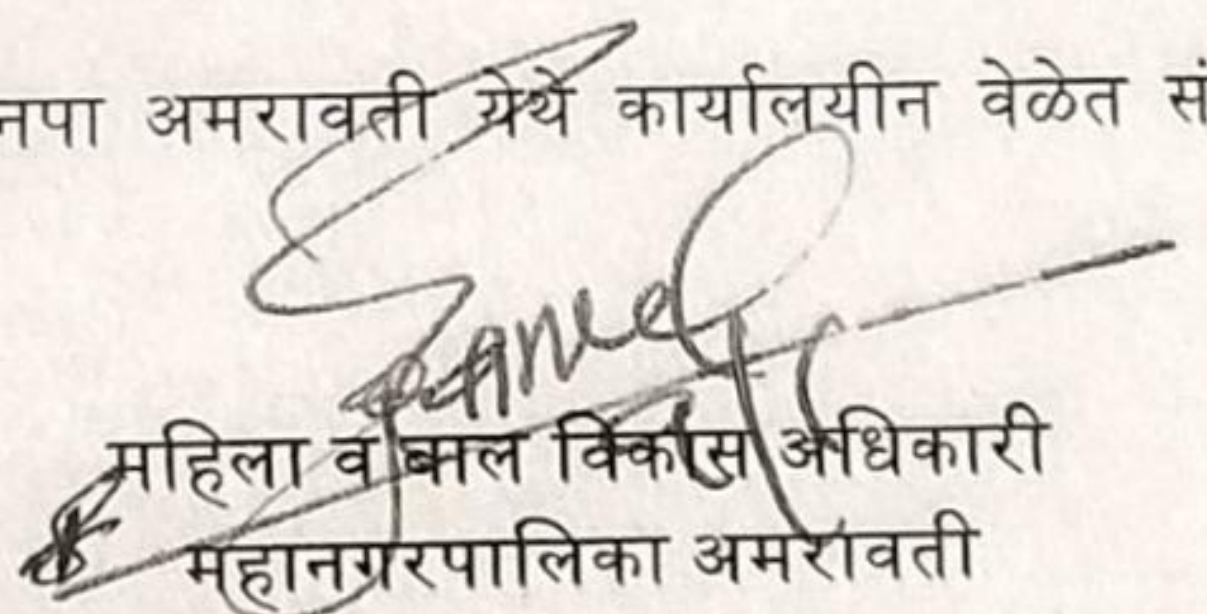 नपा अमरावती येथे कार्यालयीन वेळेत सं
महिला व बाल विकास अधिकारी
महानगरपालिका अमरावती